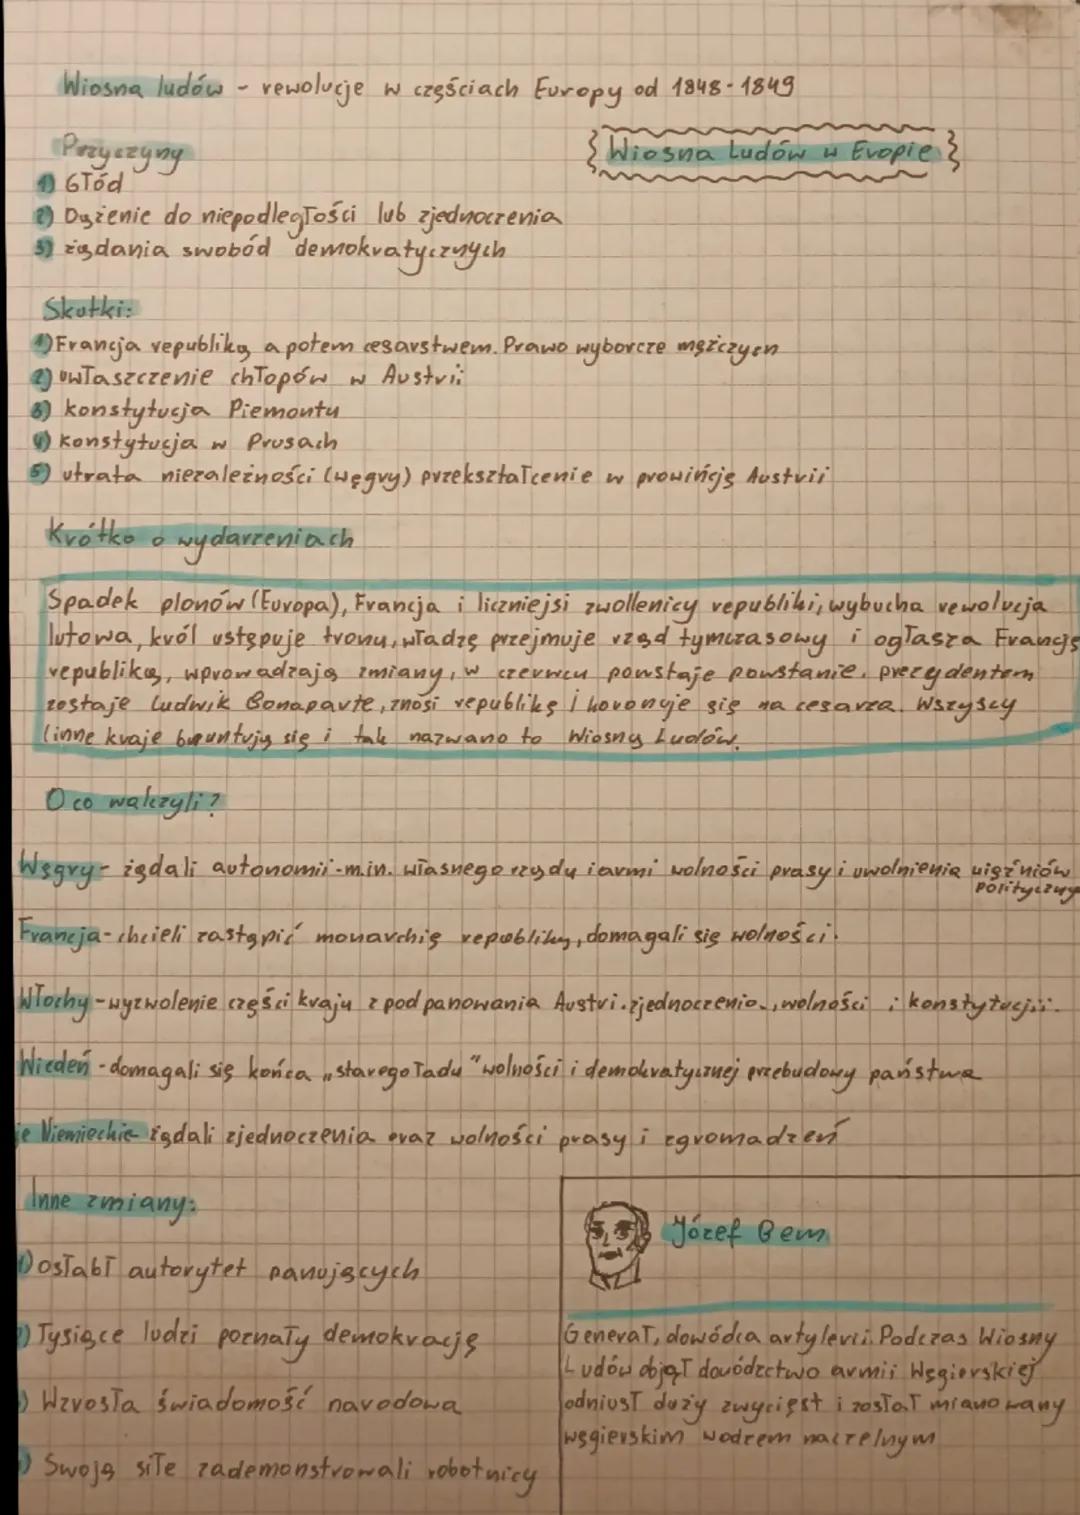 Wiosna ludów - rewolucje w częściach Europy od 1848-1849
Wiosna Ludów w Eropie
Przyczyny
1) Głód
2) Dążenie do niepodległości lub zjednoczenia
3) żądania swobód demokratycznych
Skutki:
1) Francja republiką a potem cesarstwem. Prawo wyborcze mężczyzn
2) uwłaszczenie chłopów w Austrii
3) konstytucja Piemontu
4) konstytucja w Prusach
5) utrata niezależności (węgry) przekształcenie w prowincję Austrii
Krótko o wydarzeniach
Spadek plonów (Europa), Francja i liczniejsi zwollenicy republiki, wybucha rewolucja
lutowa, król ustępuje tronu, władzę przejmuje rząd tymczasowy i ogłasza Francję
republiką, wprowadzają zmiany, w czerwcu powstaje powstanie. prezydentem
zostaje Ludwik Bonaparte, znosi republikę i koronuje się na cesarza. Wszyscy
(inne kraje buntują się i tak nazwano to Wiosną Ludów.
O co walczyli?
Węgry - żądali autonomii - m.in. własnego rządu i armi wolności prasy i uwolnienia więźniów
polityczny
Francja - chcieli zastąpić monarchię republiką, domagali się wolności.
Włochy - wyzwolenie części kraju z pod panowania Austri. zjednoczenia, wolności i konstytucji.
Wiedeń - domagali się końca „starego ładu" wolności i demokratycznej przebudowy państwa
je Niemieckie żądali zjednoczenia oraz wolności prasy i zgromadzeń
Inne zmiany:
1) osłabł autorytet panujących
2) Tysiące ludzi poznały demokrację
) Wzrosła świadomość narodowa
) Swoją siłe zademonstrowali robotnicy
Józef Bem
Generał, dowódca artylerii. Podczas Wiosny
Ludów objął dowództwo armii Węgierskiej
odniusł duży zwycięst i został mianowany
węgierskim wodzem naczelnym